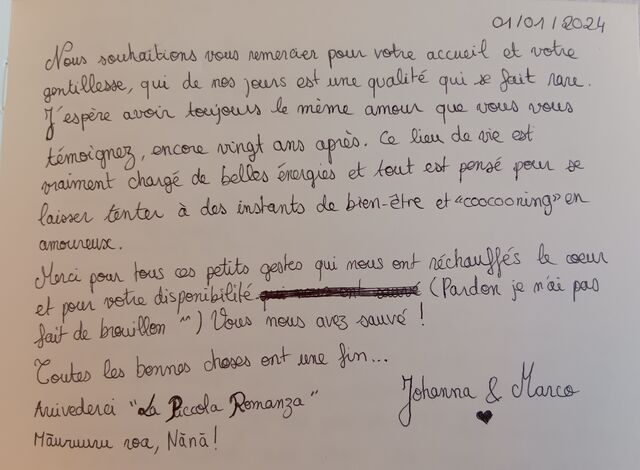 01/01/2024
Nous souhaitions vous remercier pour votre accueil et votre
gentillesse, qui de nos jours est une qualité qui se fait rare.
J'espère avoir toujours le même amour que vous vous
témoignez, encore vingt ans après. Ce lieu de vie est
vraiment chargé de belles énergies et tout est pensé pour se
laisser tenter à des instants de bien-être et "coocooning" en
amoureux.
Merci pour tous ces petits gestes qui nous ont réchauffés le coeur
et pour votre disponibilité (Pardon je n'ai pas
fait de brouillon ^^) Vous nous avez sauvé !
Toutes les bonnes choses ont une fin...
Arivederci "La Piccola Romanza"
Māuruuru roa, Nānā !
Johanna & Marco
♥